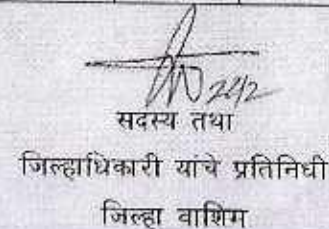 सदस्य तथा
जिल्हाधिकारी यांचे प्रतिनिधी
जिल्हा वाशिम